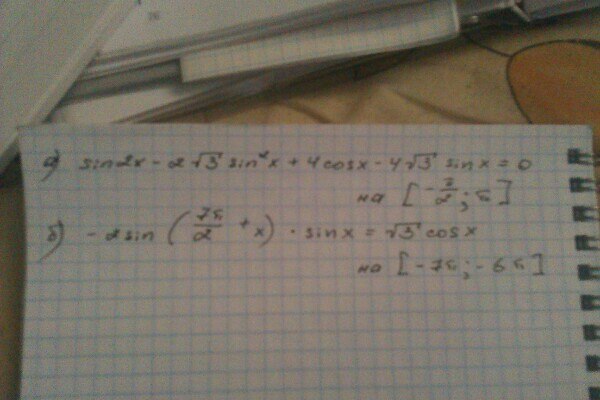 а) sin2x - 2√3 sin²x + 4cosx - 4√3 sinx = 0
на [-π/2; π]
б) -2sin (7π/2 + x) · sinx = √3 cosx
на [-7π; -6π]